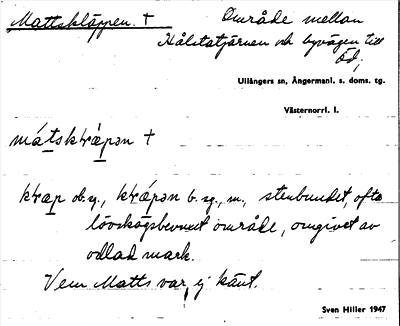 Mattskläppen. †
Område mellan
Hålstatjärnen och byvägen till
Öd;
Ullångers sn, Ångermanl. s. doms. tg.
Västernorrl. l.
mátskḷǽpən †
kḷæp ob. y., kḷǽpən b. sg., m., stenbundet, ofta
lövskogsbevuxet område, omgivet av
odlad mark.
Vem Matts var, ej känt.
Sven Hiller 1947